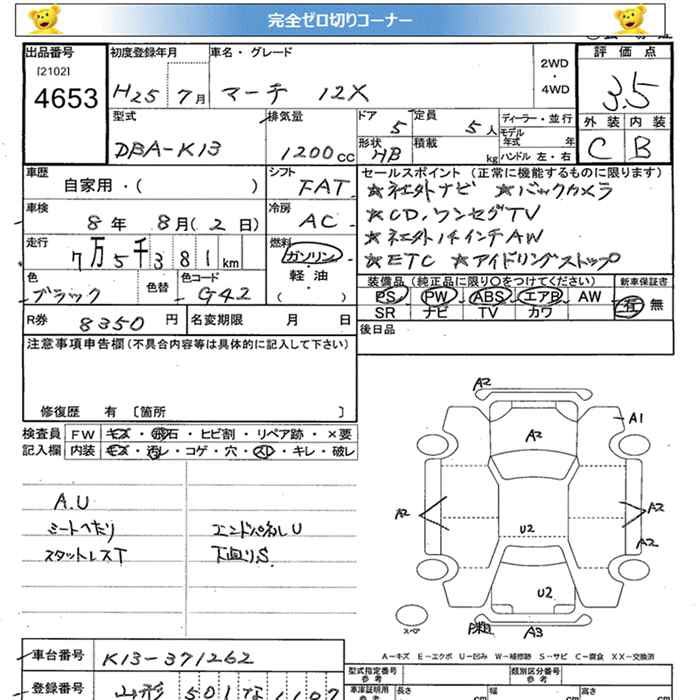 完全ゼロ切りコーナー
出品番号 初度登録年月 車名・グレード 2WD・4WD 評価点
[2102]
4653 H25 7月 マーチ 12X 3.5
型式 排気量 ドア 5 定員 5人 ディーラー・並行 外装 内装
モデル年式 年
DBA-K13 1200cc 形状 HB 積載 kg ハンドル 左・右 C B
車歴 シフト セールスポイント (正常に機能するものに限ります)
自家用・( ) FAT ☆社外ナビ ☆バックカメラ
車検 冷房 ☆CD,ワンセグTV
8年 8月(2日) AC ☆社外14インチAW
走行 燃料 ☆ETC ☆アイドリングストップ
7万5千381km ガソリン
軽・油
( )
色 色替 色コード 装備品 (純正品に限り○をつけてください) 新車保証書
ブラック G42 PS PW ABS エアB AW 有 無
SR ナビ TV カワ
R券 8350円 名変期限 月 日 後日品
注意事項申告欄(不具合内容等は具体的に記入して下さい)
修復歴 有 [箇所 ]
検査員 FW キズ・飛石・ヒビ割・リペア跡・×要
記入欄 内装 キズ・汚レ・コゲ・穴・スレ・キレ・破レ
A.U
シートへたり エンドパネルU
スタットレスT 下回りS
A2
A1
A2
A2
A2
A2
U2
U2
A3
スペア
A-キズ E-エクボ U-凹み W-補修跡 S-サビ C-腐食 XX-交換済
車台番号 K13-371262 型式指定番号 参考 類別区分番号 参考
登録番号 山形 501 な 1107 車庫証明用 参考 長さ cm 幅 cm 高さ cm